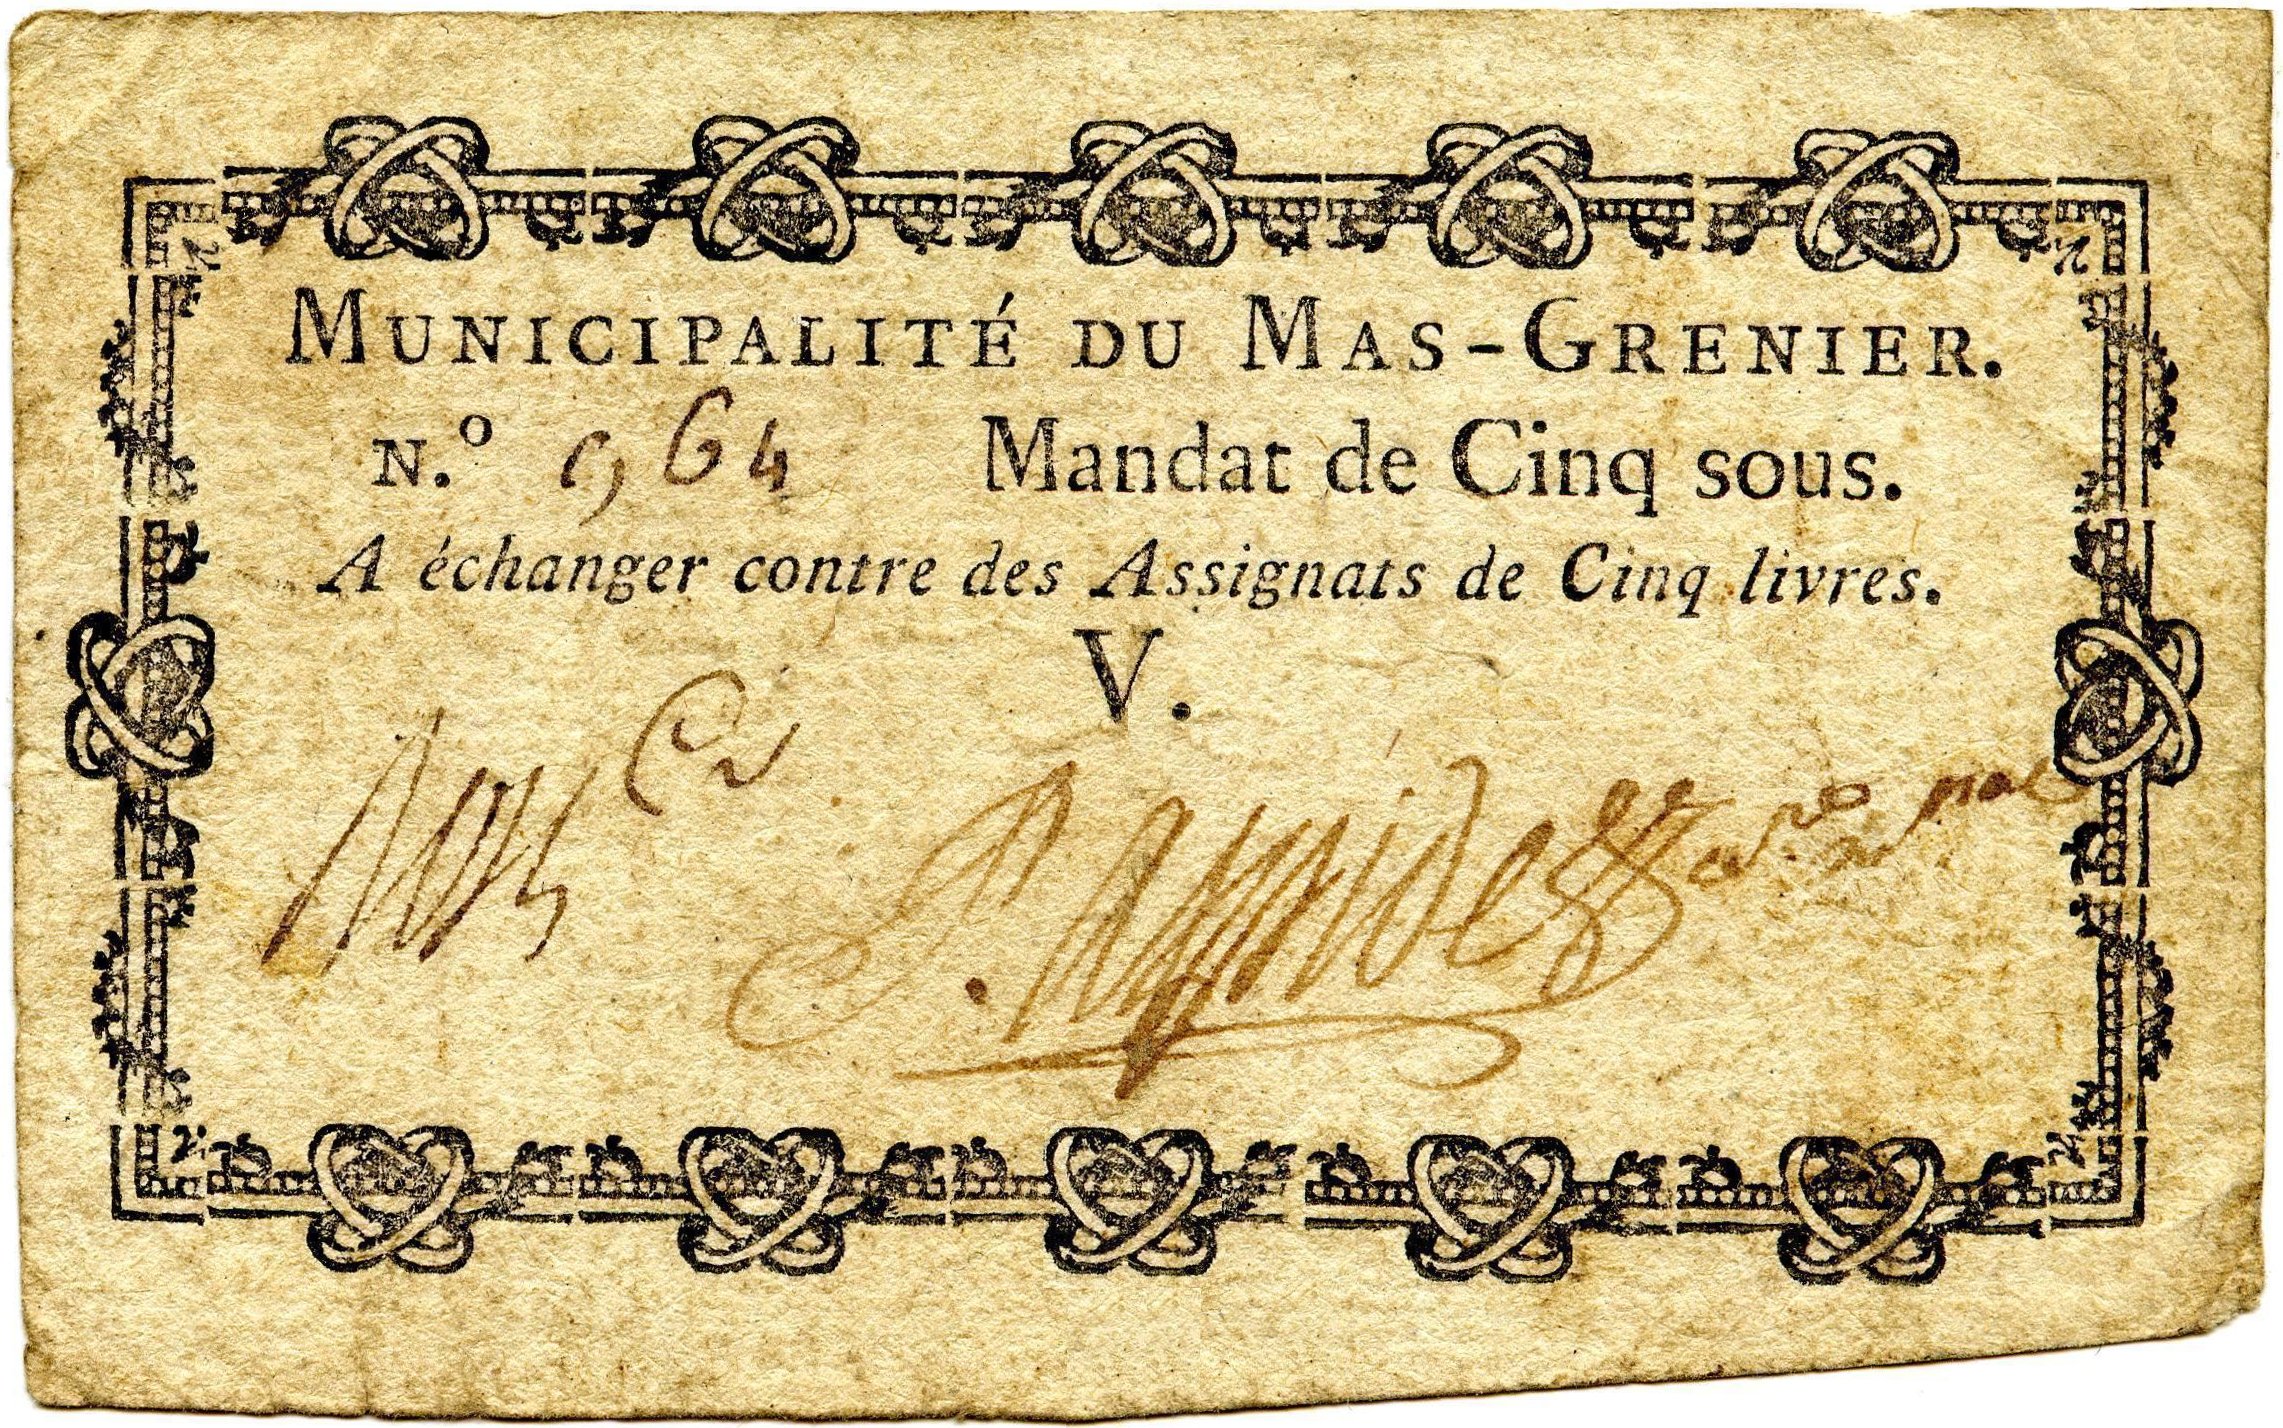 MUNICIPALITÉ DU MAS-GRENIER.
N.º 964 Mandat de Cinq sous.
A échanger contre des Assignats de Cinq livres.
V.